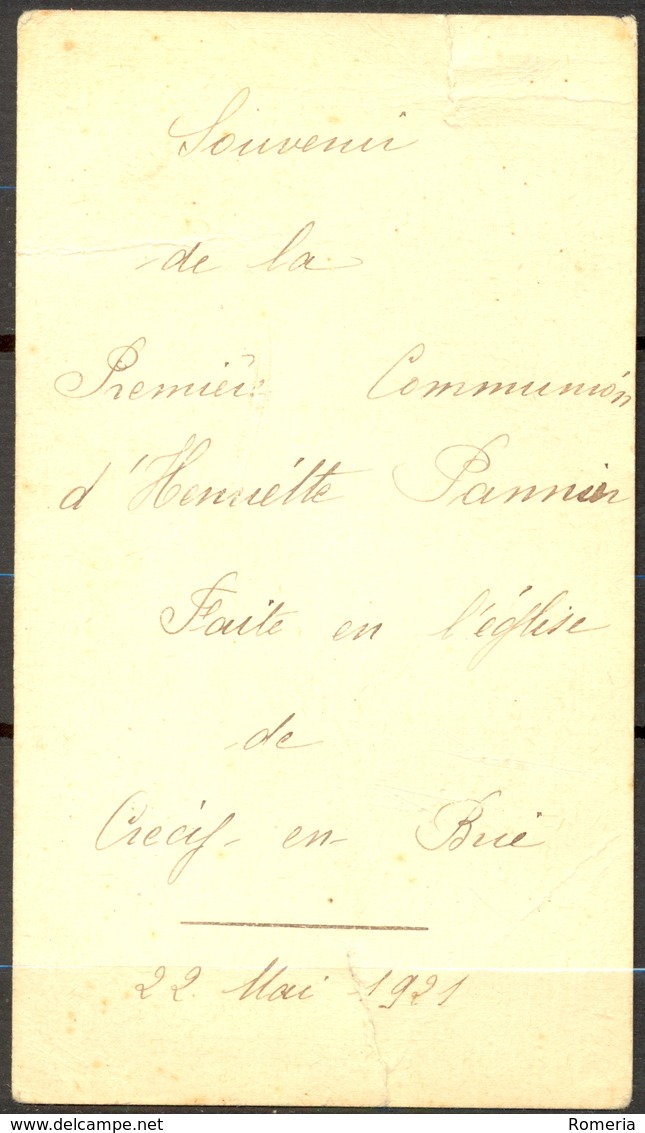 Souvenir
de la
Première Communion
d'Henriétte Pannier
Faite en l'église
de
Crécy-en-Brie
22 Mai 1921
www.delcampe.net
Romeria